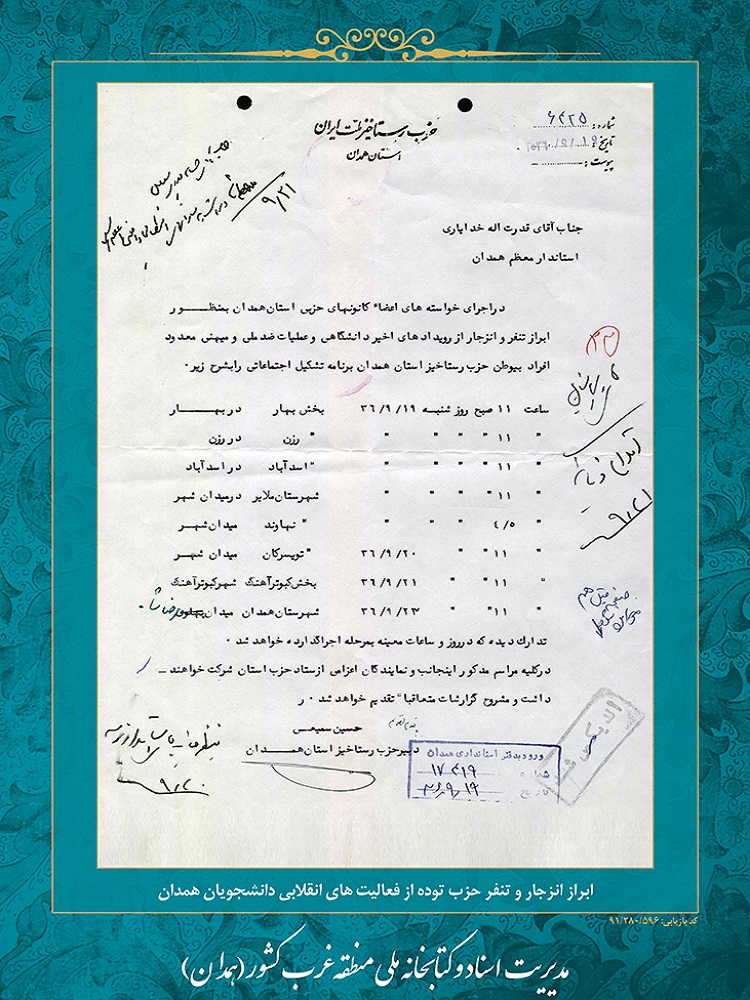 حزب رستاخیز ملت ایران
استان همدان
شماره: ۶۴۲۵
تاریخ:
پیوست:
۹/۲۱
جناب آقای قدرت اله خدایاری
استاندار معظم همدان
دراجرای خواسته های اعضاء کانونهای حزبی استان همدان بمنظور
ابراز تنفر و انزجار از رویدادهای اخیر دانشگاهی و عملیات ضد ملی و میهنی معدود
افراد بیوطن حزب رستاخیز استان همدان برنامه تشکیل اجتماعاتی رابشرح زیر۰
ساعت ۱۱ صبح روز شنبه ۳۶/۹/۱۹ بخش بهار در بهار
" ۱۱ " " " " " رزن در رزن
" ۱۱ " " " " " اسدآباد در اسدآباد
" ۱۱ " " " " شهرستان ملایر در میدان شهر
" ۴/۵ " " " " نهاوند میدان شهر
" ۱۱ " " ۳۶/۹/۲۰ " تویسرکان میدان شهر
" ۱۱ " " ۳۶/۹/۲۱ بخش کبوترآهنگ شهر کبوترآهنگ
" ۱۱ " " ۳۶/۹/۲۳ شهرستان همدان میدان پهلوی رضا شاه
تدارك دیده که در روز و ساعات معینه بمرحله اجرا گذارده خواهد شد ۰
در کلیه مراسم مذکور اینجانب و نمایندگان اعزامی از ستاد حزب استان شرکت خواهند
داشت و مشروح گزارشات متعاقبا" تقدیم خواهد شد ۰
حسین سمیعی
دبیر حزب رستاخیز استان همدان
ورود بدفتر استانداری همدان
شماره ۱۷۴۱۹
تاریخ
۹/۲۰
۴۲
۹/۲۱
ابراز انزجار و تنفر حزب توده از فعالیت های انقلابی دانشجویان همدان
کد بازیابی: ۹۱/۲۸۰/۵۹۶
مدیریت اسناد و کتابخانه ملی منطقه غرب کشور (همدان)